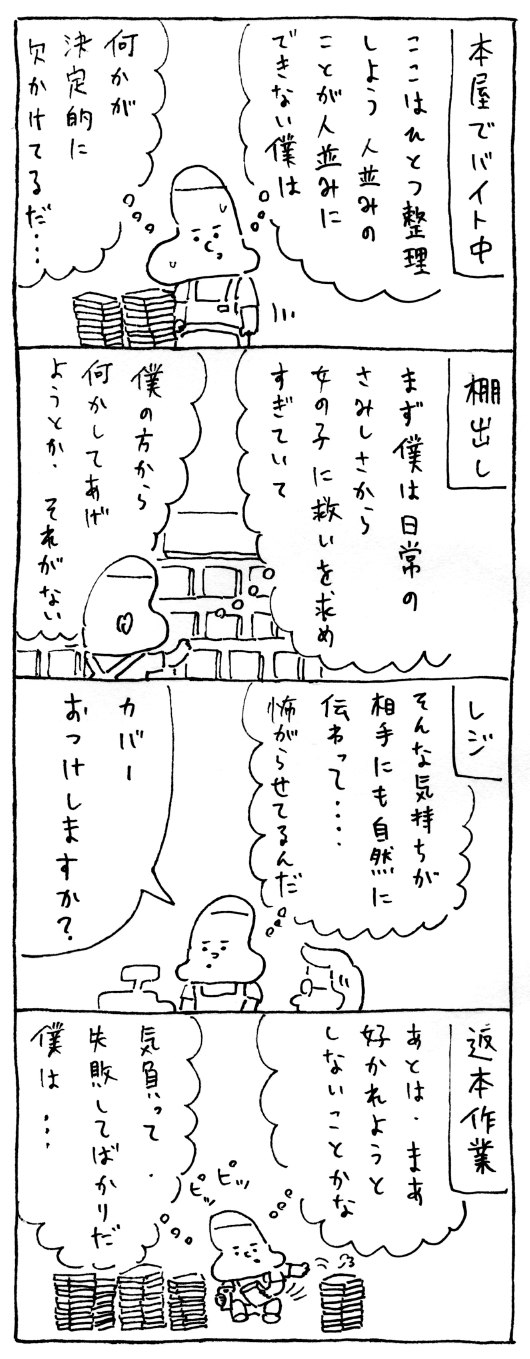 本屋でバイト中
ここはひとつ整理
しよう 人並みの
ことが人並みに
できない僕は
何かが
決定的に
欠かけてるだ…
棚出し
まず僕は日常の
さみしさから
女の子に救いを求め
すぎていて
僕の方から
何かしてあげ
ようとか、それがない
レジ
そんな気持ちが
相手にも自然に
伝わって・・・・
怖がらせてるんだ
カバー
おつけしますか?
返本作業
あとは、まあ
好かれようと
しないことかな
ピッ
ピッ
気負って、
失敗してばかりだ
僕は…